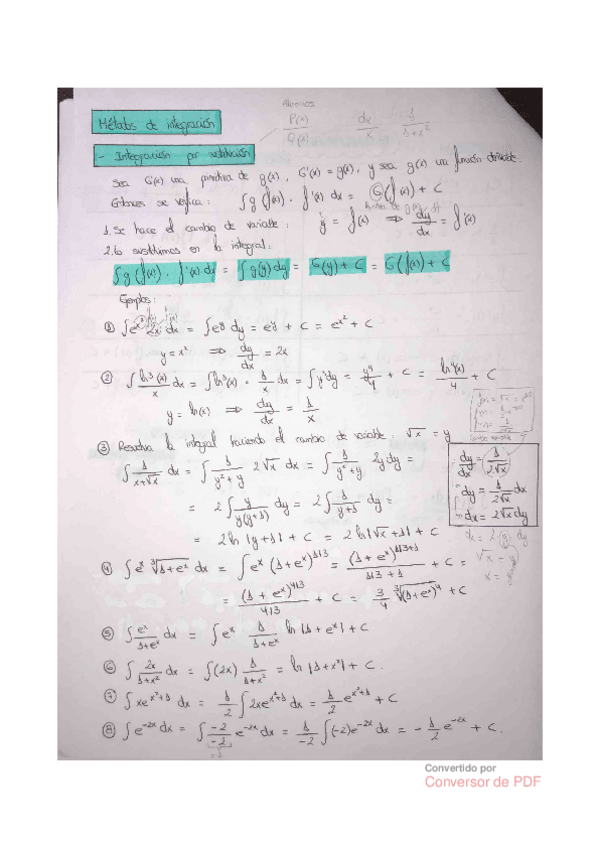 Alumnos:
P(x)/Q(x) dx/x 1/(1+x²)
Métodos de integración
- Integración por sustitución
Sea G(x) una primitiva de g(x), G'(x) = g(x), y sea g(x) una función derivable.
Entonces se verifica: ∫g(f(x)) · f'(x) dx = G(f(x)) + C
1. Se hace el cambio de variable: y = f(x) ⇒ dy/dx = f'(x)
2. Lo sustituimos en la integral:
∫g(f(x)) · f'(x) dy = ∫g(y) dy = G(y) + C = G(f(x)) + C
Ejemplos:
① ∫e^x² 2x dx = ∫e^y dy = e^y + C = e^x² + C
y = x² ⇒ dy/dx = 2x
② ∫ln³(x)/x dx = ∫ln³(x) · 1/x dx = ∫y³dy = y⁴/4 + C = ln⁴(x)/4 + C
y = ln(x) ⇒ dy/dx = 1/x
③ Resuelva la integral haciendo el cambio de variable: √x = y
∫1/(x+√x) dx = ∫1/(y²+y) 2√x dx = ∫1/(y²+y) 2y dy =
= 2∫y/(y(y+1)) dy = 2∫1/(y+1) dy =
= 2 ln|y+1| + C = 2 ln|√x+1| + C
dy/dx = 1/(2√x)
dy = 1/(2√x) dx
dx = 2√x dy
dx = 2 y dy
④ ∫e^x ∛(1+e^x) dx = ∫e^x (1+e^x)^1/3 = (1+e^x)^(1/3+1)/(1/3+1) + C =
= (1+e^x)^4/3/(4/3) + C = 3/4 ∛(1+e^x)⁴ + C
⑤ ∫e^x/(1+e^x) dx = ∫e^x 1/(1+e^x) ln|1+e^x| + C
⑥ ∫2x/(1+x²) dx = ∫(2x) 1/(1+x²) = ln|1+x²| + C.
⑦ ∫xe^(x²+1) dx = 1/2 ∫2xe^(x²+1) dx = 1/2 e^(x²+1) + C
⑧ ∫e^-2x dx = ∫-2/-2 e^-2x dx = 1/-2 ∫(-2)e^-2x dx = -1/2 e^-2x + C.
Convertido por
Conversor de PDF